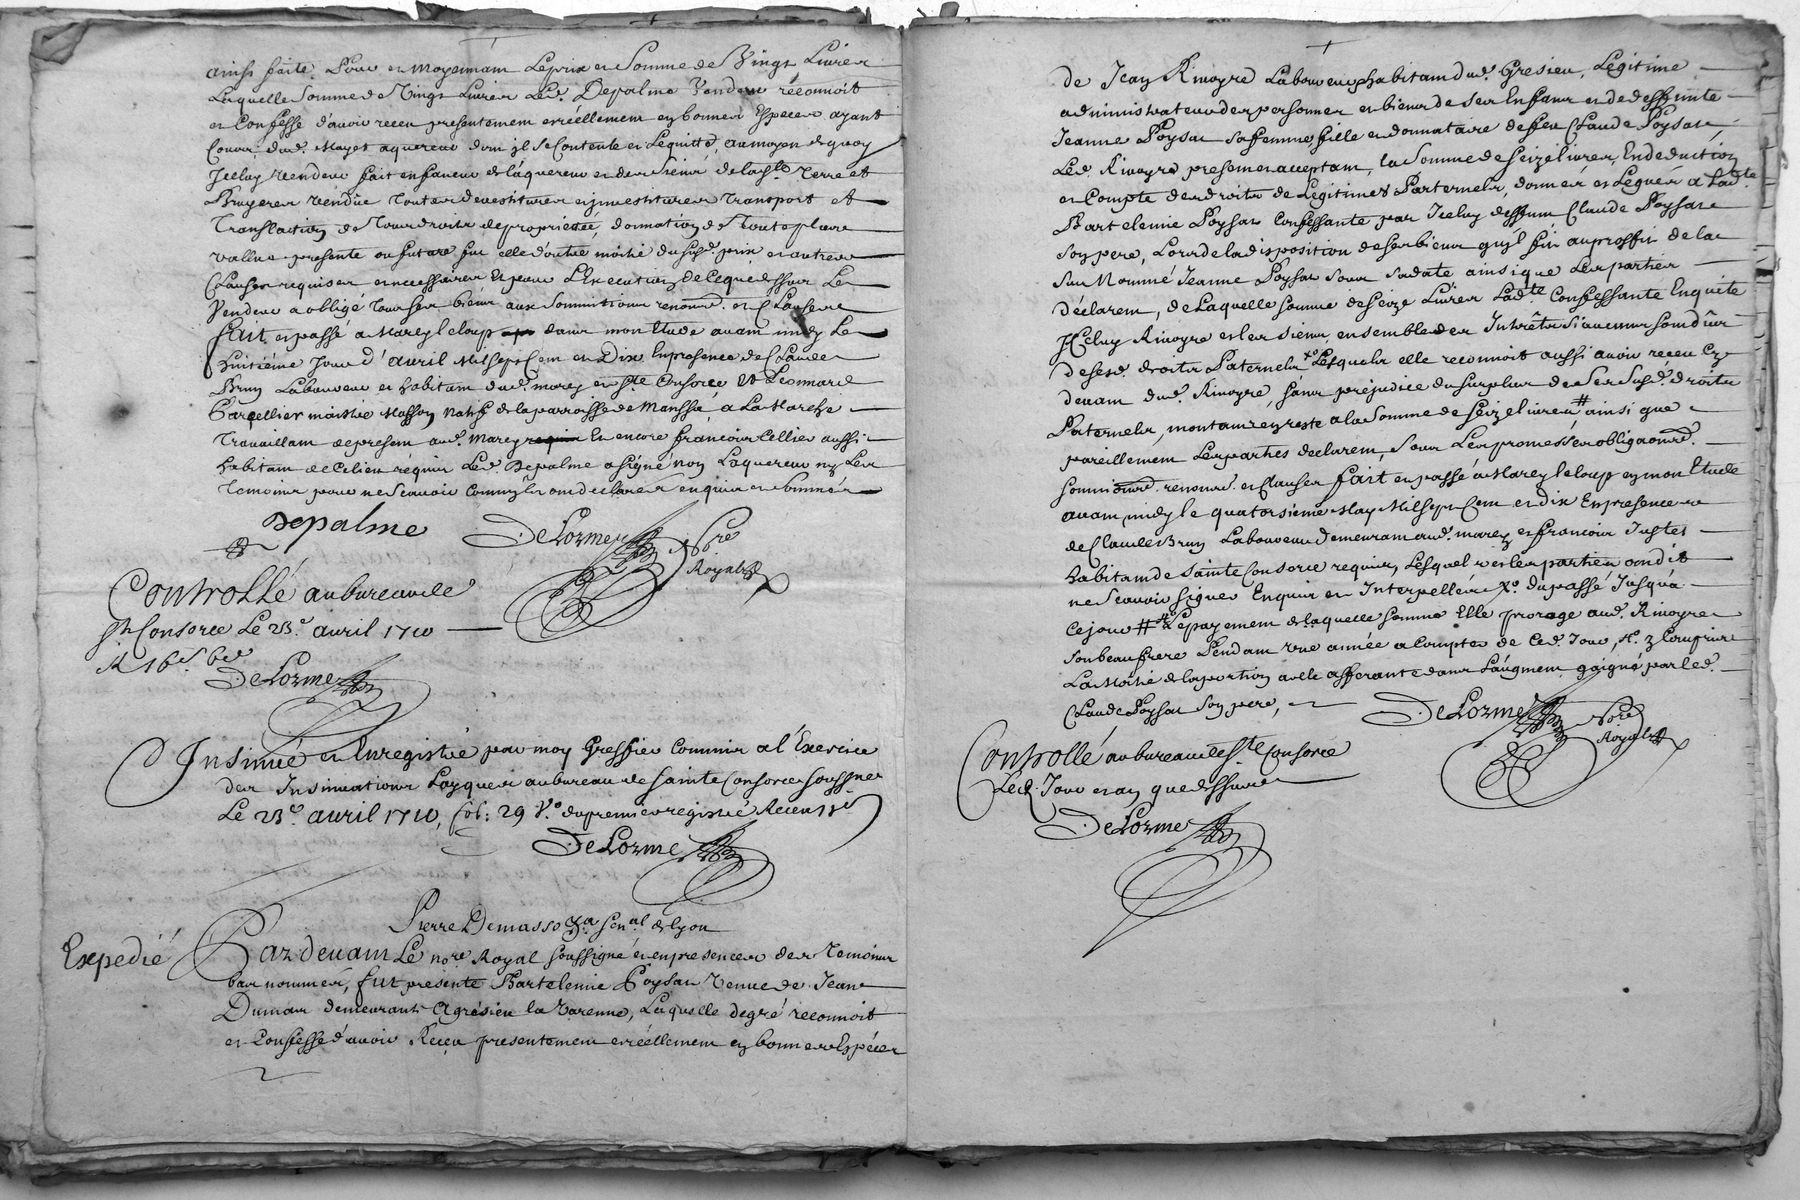 ainsi faite. Pour et moyennant Le prix et Somme de Vingt Livres
Laquelle Somme de Vingt Livres Led. Depalme Vendeur reconnoit
et Confesse d'avoir receu presentement et réellement en bonnes Especes ayant
Cours dud. Mayet aquereur dont jl Se Contente et L'equitte, au moyen de quoy
Jceluy Vendeur fait en faveur de l'aquereur et des Siens de lad.te Terre et
Bruyeres Vendüe Toutes devestitures et jnvestitures Transport et
Translation de Tous droits de proprieté, donnation de Toute plus
vallue presente ou future fut elle d'outre moitié du susd. prix et autres
Clauses requises et necessaires Et pour L'Execution de Ce que dessus Le
Vendeur a obligé Tous ses biens aux Soumissions renond. et Clauses
fait et passé a Marcy le loup dans mon Etude avant midy Le
huitième Jour d'avril Mil Sept Cent et Dix En presence de Claude
Brun Laboureur et habitant dud. marcy et S.te Consorce Et Leonnard
Parcellier maistre Masson natif de la parroisse de Manssa, a La Marche
Travaillant de present aud. Marcy Et encore francois Cellier aussi
habitant de Ce lieu requis Led. Depalme a signé non L'aquereur ny Les
Temoins pour ne Scavoir Comm'jls ont declarer enquis et Sommés
Depalme DeLorme No.re
Royal
Controllé au bureau de
S.te Consorce Le 23.e avril 1710
DeLorme
Insinué et Enregistré par moy Greffier Commis a l'Exercice
des Insinuations Layques au bureau de Sainte Consorce soussigné
Le 23.e avril 1710, fol: 29 V.o du premier registre Receu
DeLorme
Pierre Demasso Sen.al de Lyon
Expedié
Pardevant Le no.re Royal soussigné et en presence des Temoins
bas nommés, fut presente Bartelemie Poysat Veuve de Jean
Dumas demeurant a Grésieu la Varenne, Laquelle de gré reconnoit
et Confesse d'avoir Receu presentement et réellement en bonnes Espéces
de Jean Rivoyre Laboureur habitant dud. Gresieu, Légitime
administrateur des personnes et biens de ses Enfans et de deffunte
Jeanne Poysat sa femme fille et donnataire de feu Claude Poysat
Led. Rivoyre present et acceptant, la Somme de seize livres, En deduction
et Compte des droits de Legitimes Paternels, donnés et Legués a lad.te
Bartelemie Poysat Confessante par Jceluy deffunt Claude Poysat
son pere, Lors de la disposition de ses biens qu'jl fit au proffit de la
Sus Nommé Jeanne Poysat sous sa date ainsi que Les parties
déclarent, de Laquelle somme de seize Livres Lad.te Confessante En quitte
Jceluy Rivoyre et les siens, ensemble des Intrêts si aucuns sont dûs
de sesd. droits Paternels Lesquels elle reconnoit aussi avoir receu Cy
devant dud. Rivoyre, sans préjudice du surplus de Ses Susd. droits
Paternels, montant en reste a la Somme de seize livres # ainsi que
pareillement Les parties declarent, sous Les promesses obligaond.
soumissiond. renond. et Clauses fait et passé à Marcy le loup en mon Etude
avant midy le quatorsième May Mil Sept Cent et dix En presence
de Claude Brun Laboureur demeurant aud. marcy et francois Justet
habitant de Sainte Consorce requis, Lesquels et les parties ont dit
ne Scavoir signer Enquis et Interpellés X.o du passé Jusqu'a
Ce jour # Le payement de laquelle somme Elle proroge aud. Rivoyre
son beaufrere Pendant une année a Compter de Ced. Jour, Comprise
La Moitié de la portion a elle afferante dans l'augment gaigné par led.
Claude Poysat Son pere,
DeLorme No.re
Royal
Controllé au bureau de S.te Consorce
Led. Jour et an que dessus
DeLorme